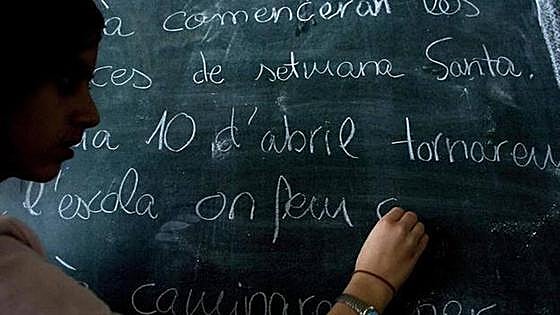 à començeran les
ces de setmana Santa.
ia 10 d'abril tornareu
l'escola on feu c
caminara per